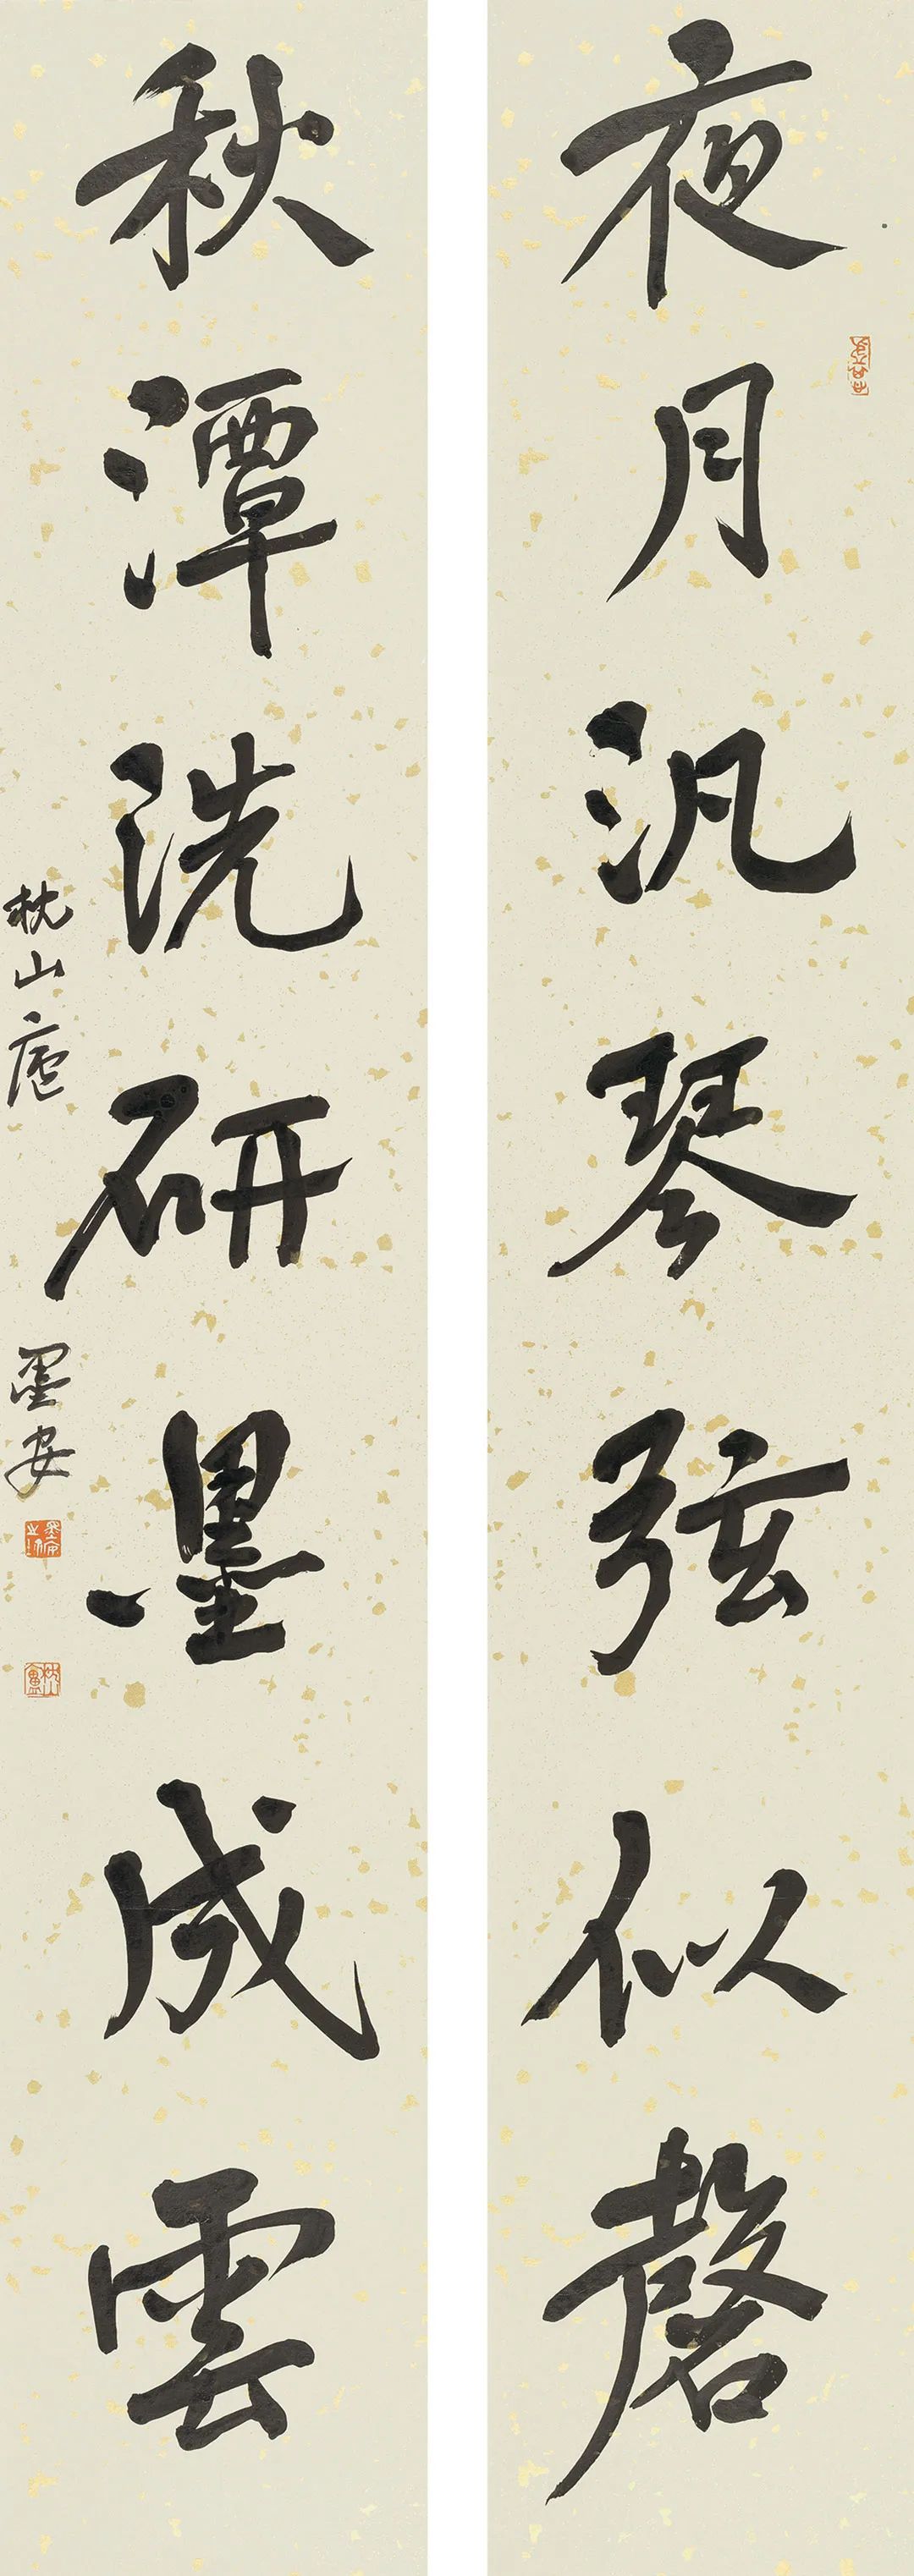 夜月汎琴弦似磬
秋潭洗研墨成雲
枕山廬
墨安